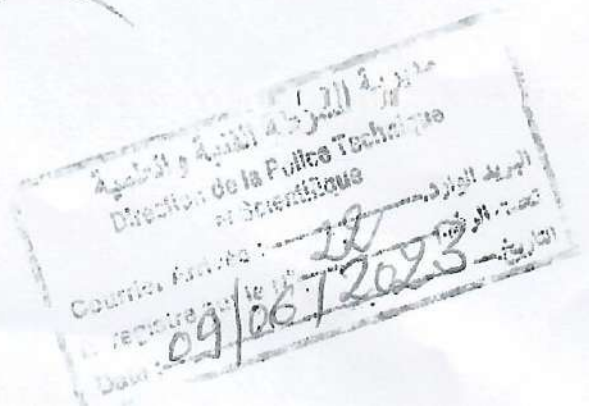 مديرية الشرطة الفنية و العلمية
Direction de la Police Technique
et Scientifique
Courrier Arrivée : 22 البريد الوارد
le n°
Date : 09/06/2023 التاريخ